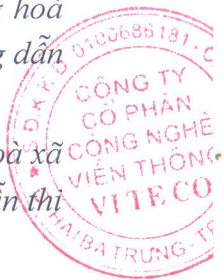 hoà
dẫn
hoà xã
thi
0100686181
CÔNG TY
CỔ PHẦN
CÔNG NGHỆ
VIỄN THÔNG
VITECO
HAI BÀ TRƯNG